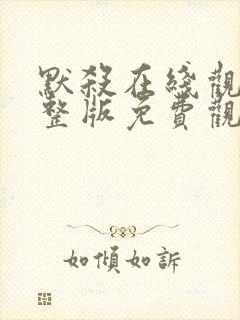 默殺在綫觀
整版免費觀
如傾如訴